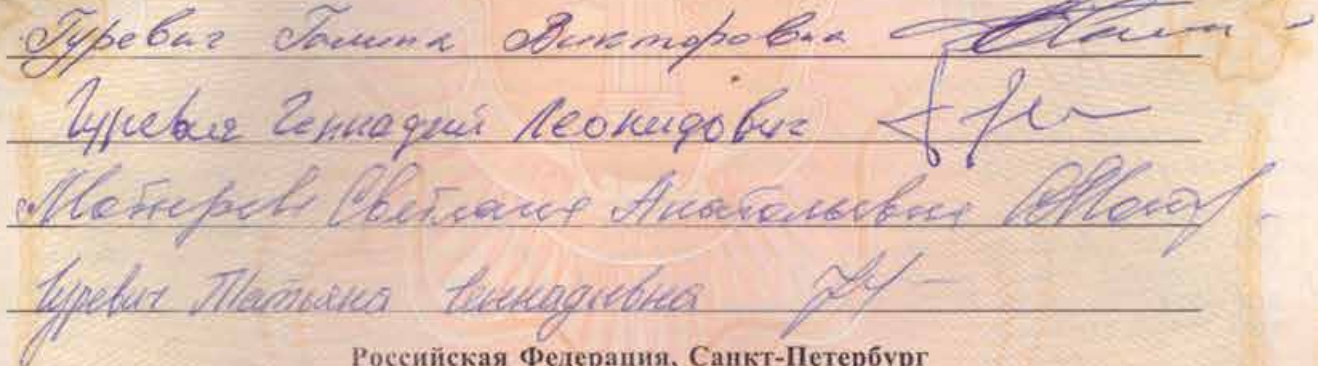 Гуревич Галина Викторовна
Гуревич Геннадий Леонидович
Светлана Анатольевна
Гуревич Татьяна Геннадьевна
Российская Федерация, Санкт-Петербург